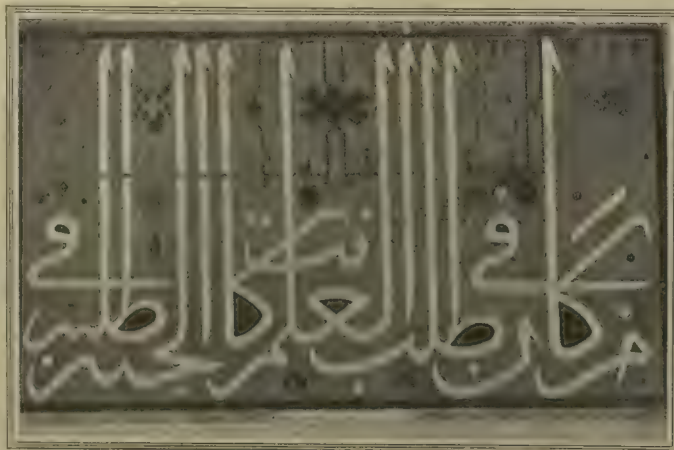 من كان في طلب العلم كانت الجنة في طلبه